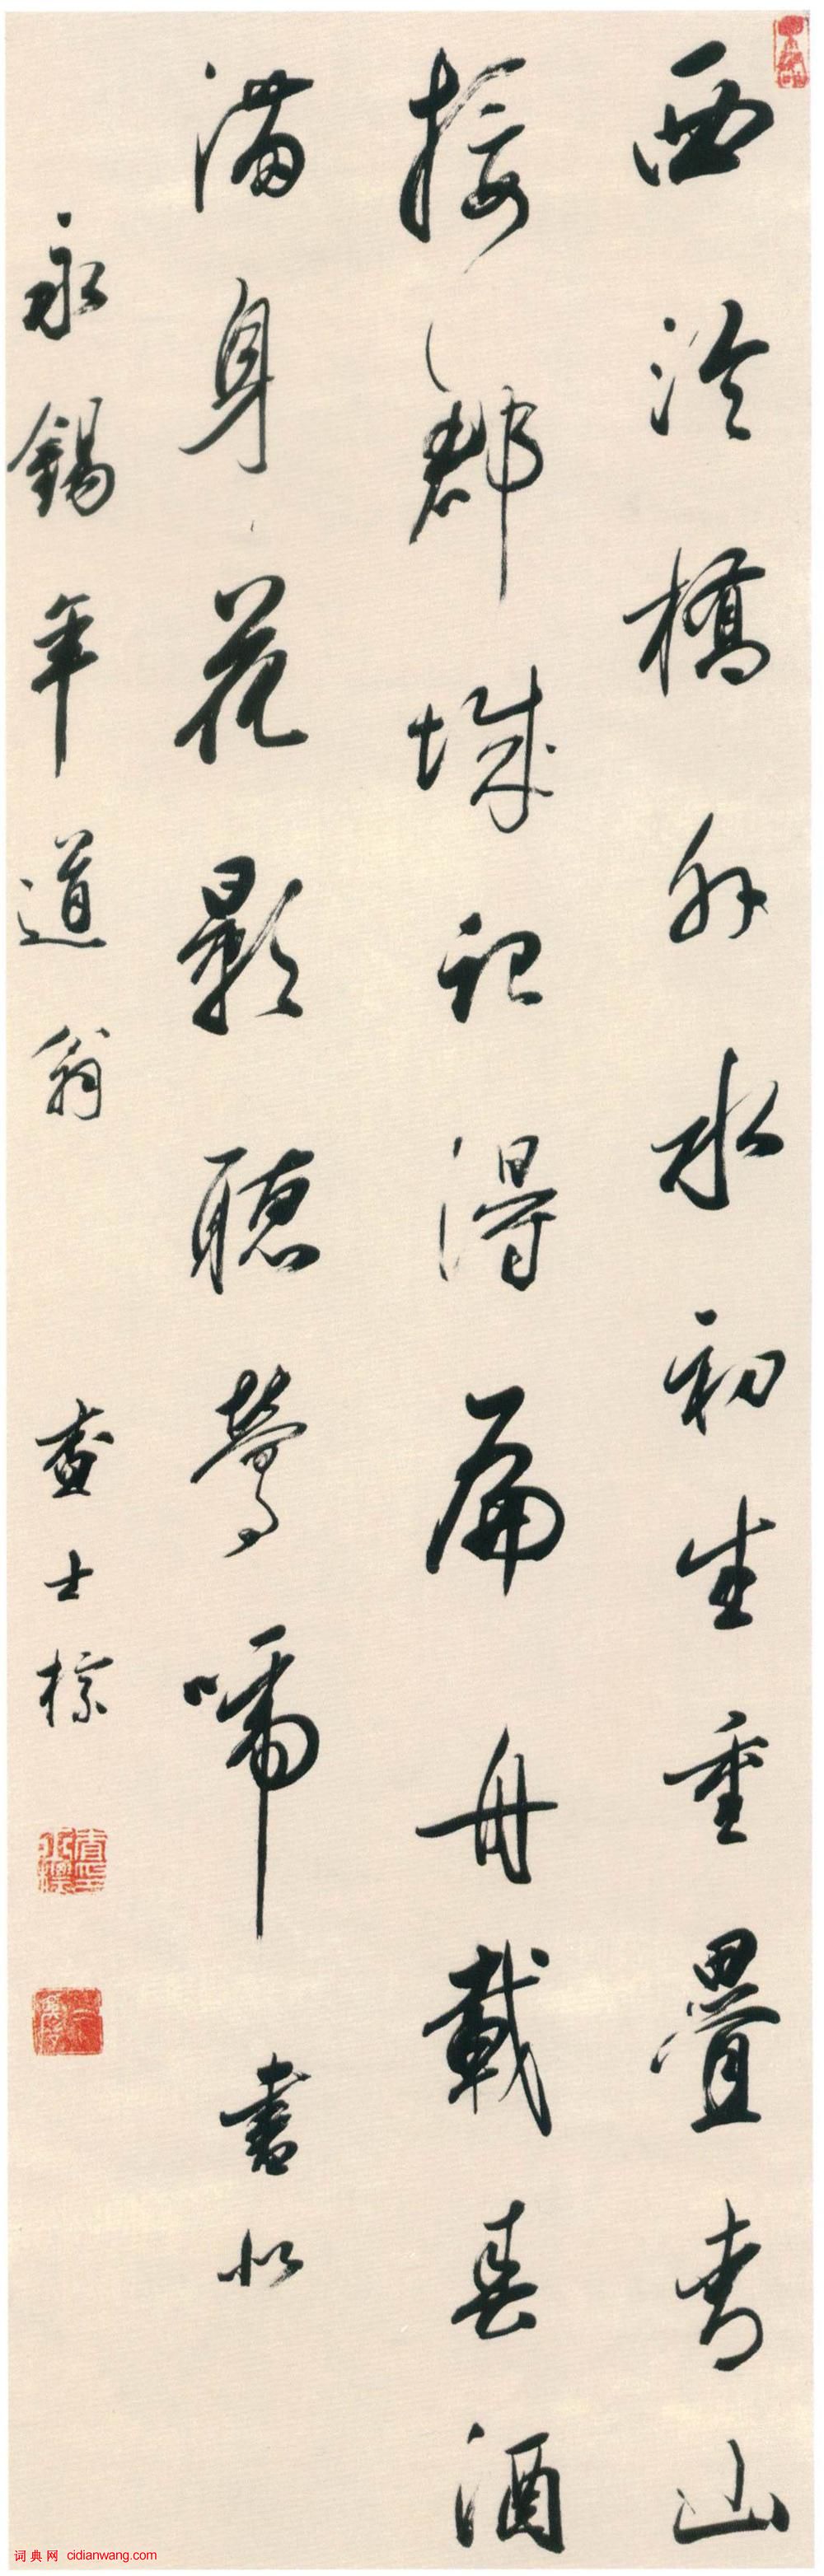 西泠橋外水初生重疊青山
接郡城記得扁舟載春酒
滿身花影聽鶯啼 書似
永錫年道翁 查士標
词典网 cidianwang.com